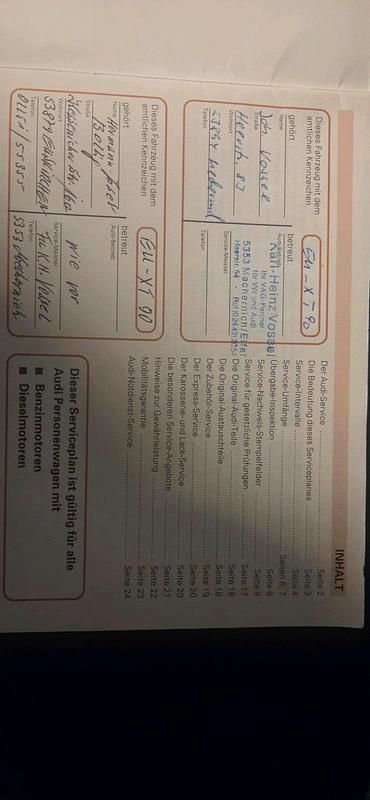 INHALT
Der Audi-Service Seite 2
Die Bedeutung dieses Serviceplanes Seite 3
Service-Intervalle Seite 4
Service-Umfänge Seiten 6, 7
Übergabe-Inspektion Seite 8
Service-Nachweis-Stempelfelder Seite 9
Service für gesetzliche Prüfungen Seite 17
Die Original-Audi-Teile Seite 18
Die Original-Austauschteile Seite 18
Der Zubehör-Service Seite 19
Der Express-Service Seite 20
Der Karosserie- und Lack-Service Seite 20
Die besonderen Service-Angebote Seite 21
Hinweise zur Gewährleistung Seite 22
Mobilitätsgarantie Seite 23
Audi-Notdienst-Service Seite 24
Dieser Serviceplan ist gültig für alle
Audi Personenwagen mit
■ Benzinmotoren
■ Dieselmotoren
Dieses Fahrzeug mit dem
amtlichen Kennzeichen
EU-XT 90
gehört
Name
Vossel
Straße
83
Wohnort
Telefon
betreut
Audi-Betrieb
Karl-Heinz Vossel
Ihr VAG-Partner
für VW und Audi
5353 Mechernich/Eifel
Heerstr. 54
Service-Meister
Telefon
Dieses Fahrzeug mit dem
amtlichen Kennzeichen
EU-XT 90
gehört
Name
Hermann Josef
Straße
Wohnort
53879 Euskirchen
Telefon
betreut
Audi-Betrieb
wie vor
Service-Meister
K.H. Vossel
Telefon
5353 Mechernich